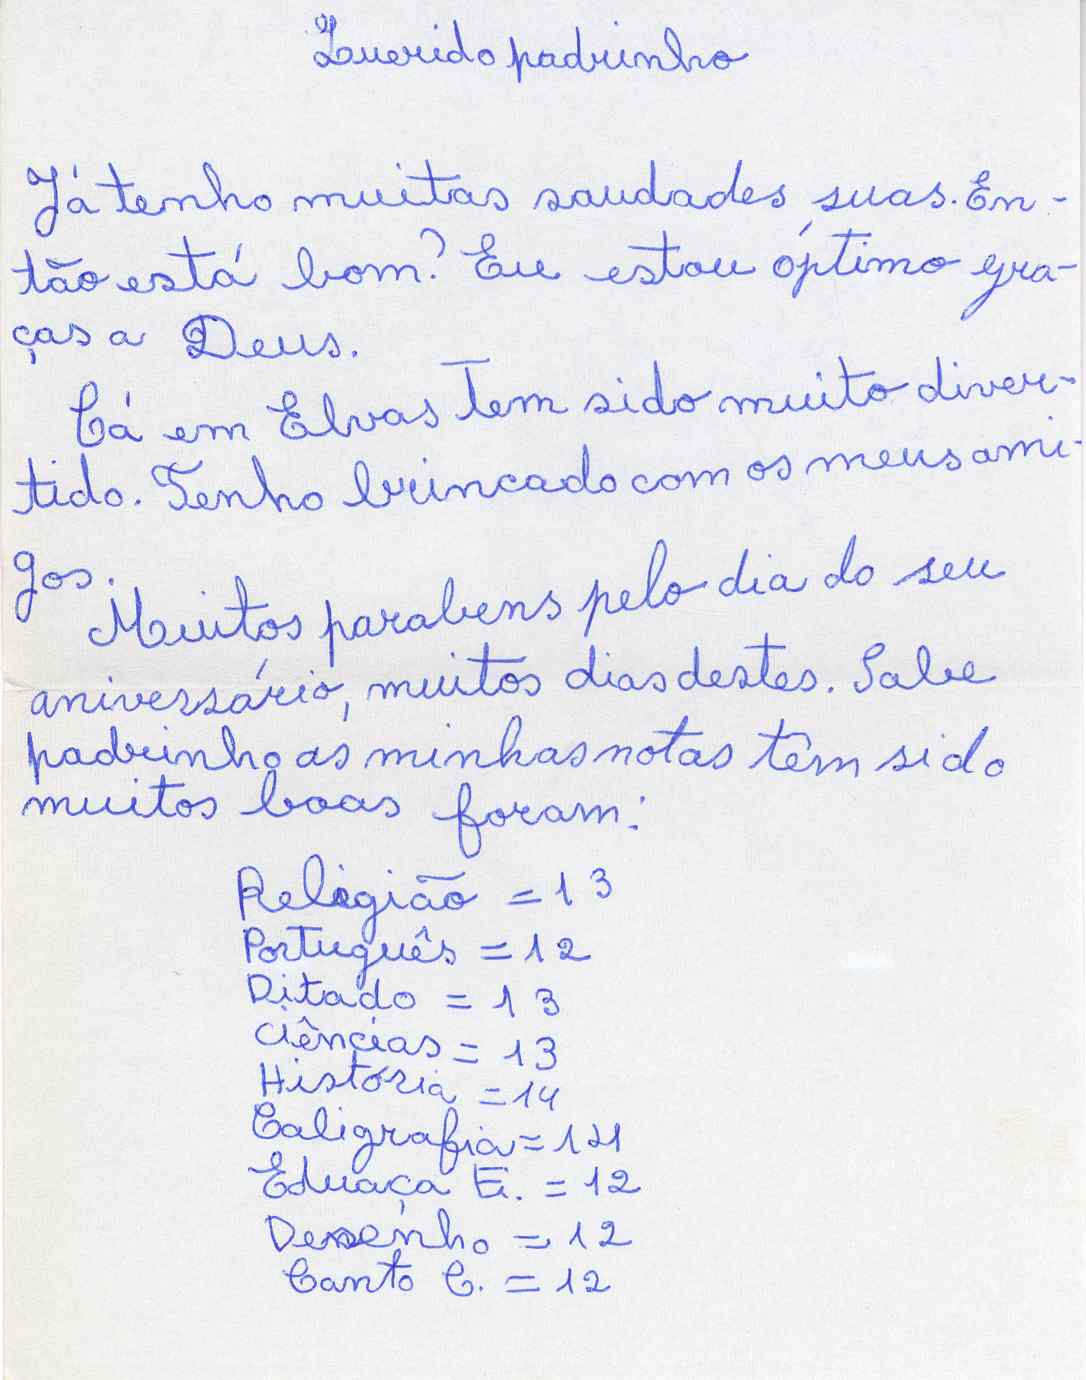 Querido padrinho
Já tenho muitas saudades suas. En-
tão está bom? Eu estou óptimo gra-
ças a Deus.
Cá em Elvas Tem sido muito diver-
tido. Tenho brincado com os meus ami-
gos.
Muitos parabens pelo dia do seu
aniversário, muitos dias destes. Sabe
padrinho as minhas notas têm sido
muitos boas foram:
Religião = 13
Português = 12
Ditado = 13
Ciências = 13
História = 14
Caligrafia = 14
Eduaça E. = 12
Desenho = 12
Canto C. = 12